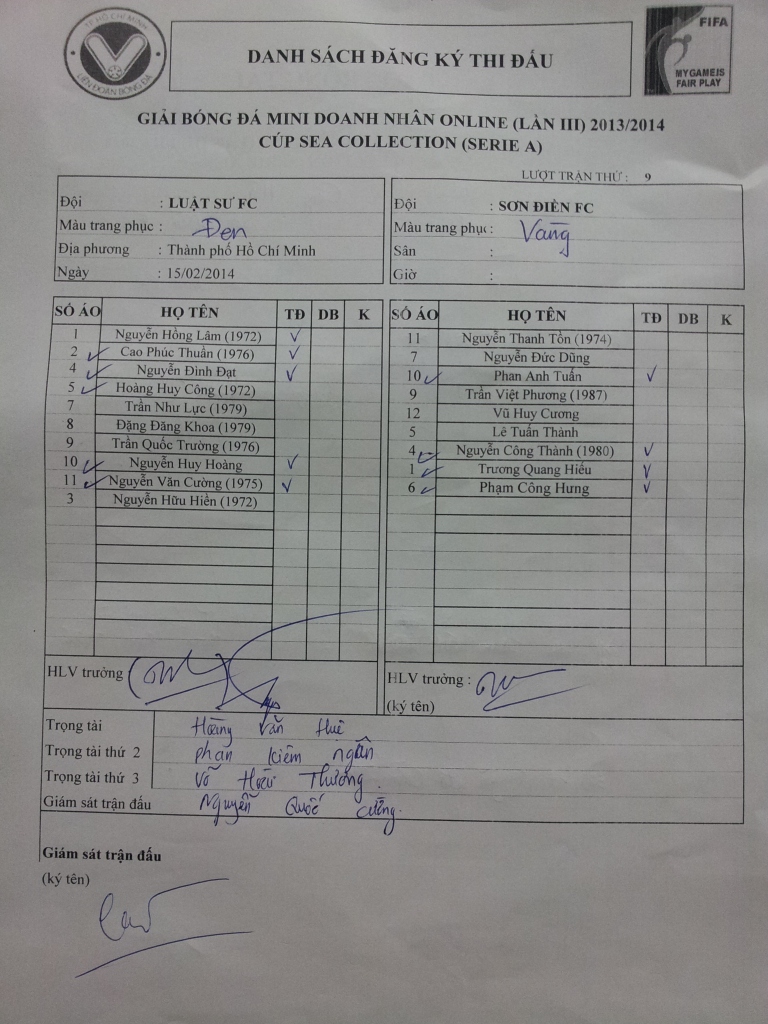 TP HỒ CHÍ MINH
LIÊN ĐOÀN BÓNG ĐÁ
DANH SÁCH ĐĂNG KÝ THI ĐẤU
FIFA
MY GAME IS
FAIR PLAY
GIẢI BÓNG ĐÁ MINI DOANH NHÂN ONLINE (LẦN III) 2013/2014
CÚP SEA COLLECTION (SERIE A)
LƯỢT TRẬN THỨ : 9
Đội : LUẬT SƯ FC
Màu trang phục : Đen
Địa phương : Thành phố Hồ Chí Minh
Ngày : 15/02/2014
Đội : SƠN ĐIỀN FC
Màu trang phục : Vàng
Sân :
Giờ :
SỐ ÁO HỌ TÊN TĐ DB K
1 Nguyễn Hồng Lâm (1972) ✓
2 ✓ Cao Phúc Thuần (1976) ✓
4 ✓ Nguyễn Đình Đạt ✓
5 ✓ Hoàng Huy Công (1972)
7 Trần Như Lực (1979)
8 Đặng Đăng Khoa (1979)
9 Trần Quốc Trường (1976)
10 ✓ Nguyễn Huy Hoàng ✓
11 ✓ Nguyễn Văn Cường (1975) ✓
3 Nguyễn Hữu Hiền (1972)
HLV trưởng
SỐ ÁO HỌ TÊN TĐ DB K
11 Nguyễn Thanh Tồn (1974)
7 Nguyễn Đức Dũng
10 ✓ Phan Anh Tuấn ✓
9 Trần Việt Phương (1987)
12 Vũ Huy Cương
5 Lê Tuấn Thành
4 ✓ Nguyễn Công Thành (1980) ✓
1 ✓ Trương Quang Hiếu ✓
6 ✓ Phạm Công Hưng ✓
HLV trưởng :
(ký tên)
Trọng tài Hoàng Văn Huê
Trọng tài thứ 2 phan kiêm ngân
Trọng tài thứ 3 Võ Thương
Giám sát trận đấu Nguyễn Quốc cường
Giám sát trận đấu
(ký tên)